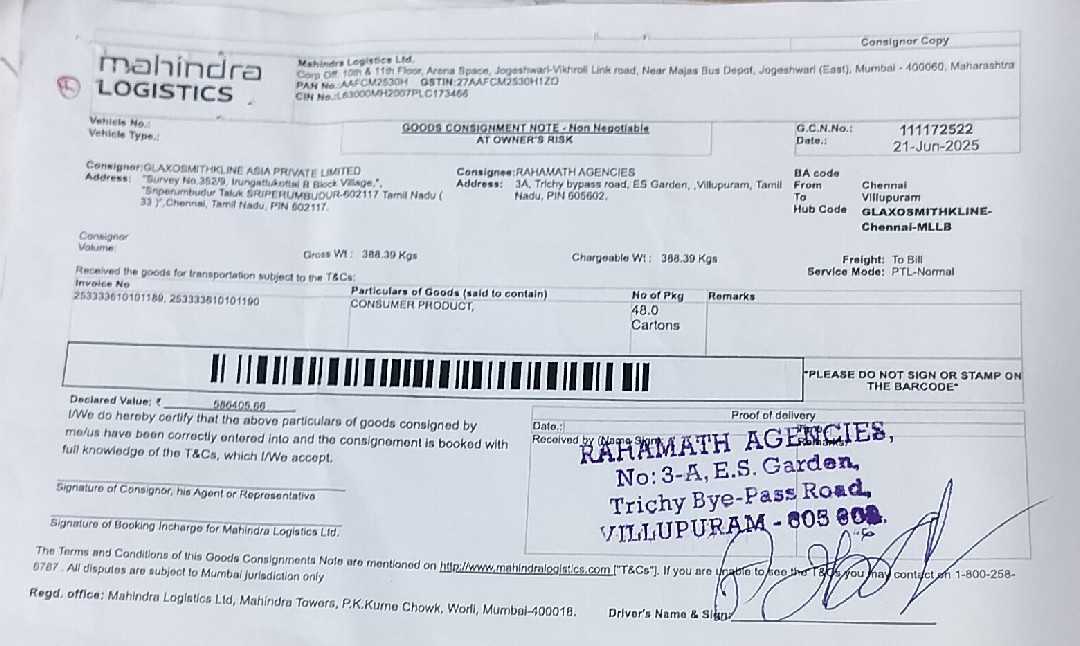 Consignor Copy
mahindra
LOGISTICS
Mahindra Logistics Ltd.
Corp Off: 10th & 11th Floor, Arena Space, Jogeshwari-Vikhroli Link road, Near Majas Bus Depot, Jogeshwari (East), Mumbai - 400060, Maharashtra
PAN No.:AAFCM2530H GSTIN:27AAFCM2530H1ZO
CIN No.:L63000MH2007PLC173466
Vehicle No.:
Vehicle Type.:
GOODS CONSIGNMENT NOTE - Non Negotiable
AT OWNER'S RISK
G.C.N.No.: 111172522
Date.: 21-Jun-2025
Consignor:GLAXOSMITHKLINE ASIA PRIVATE LIMITED
Address: "Survey No.352/9, Irungattukottai B Block Village,",
"Sriperumbudur Taluk SRIPERUMBUDUR-602117 Tamil Nadu (
33 )",Chennai, Tamil Nadu, PIN 602117.
Consignee:RAHAMATH AGENCIES
Address: 3A, Trichy bypass road, ES Garden, ,Villupuram, Tamil
Nadu, PIN 605602.
BA code
From Chennai
To Villupuram
Hub Code GLAXOSMITHKLINE-
Chennai-MLLB
Consignor
Volume:
Gross Wt : 388.39 Kgs
Chargeable Wt : 388.39 Kgs
Freight: To Bill
Service Mode: PTL-Normal
Received the goods for transportation subject to the T&Cs:
Invoice No
Particulars of Goods (said to contain)
No of Pkg
Remarks
253333610101189, 253333610101190
CONSUMER PRODUCT,
48.0
Cartons
"PLEASE DO NOT SIGN OR STAMP ON
THE BARCODE"
Declared Value: ₹ 586405.66
I/We do hereby certify that the above particulars of goods consigned by
me/us have been correctly entered into and the consignement is booked with
full knowledge of the T&Cs, which I/We accept.
Proof of delivery
Date.:
Received by (Name Sign
RAHAMATH AGENCIES,
No: 3-A, E.S. Garden,
Trichy Bye-Pass Road,
VILLUPURAM - 605 602.
Signature of Consignor, his Agent or Representative
Signature of Booking Incharge for Mahindra Logistics Ltd.
The Terms and Conditions of this Goods Consignments Note are mentioned on http://www.mahindralogistics.com ["T&Cs"]. If you are unable to see the T&Cs you may contact on 1-800-258-
6787 . All disputes are subject to Mumbai jurisdiction only
Regd. office: Mahindra Logistics Ltd, Mahindra Towers, P.K.Kurne Chowk, Worli, Mumbai-400018.
Driver's Name & Sign: